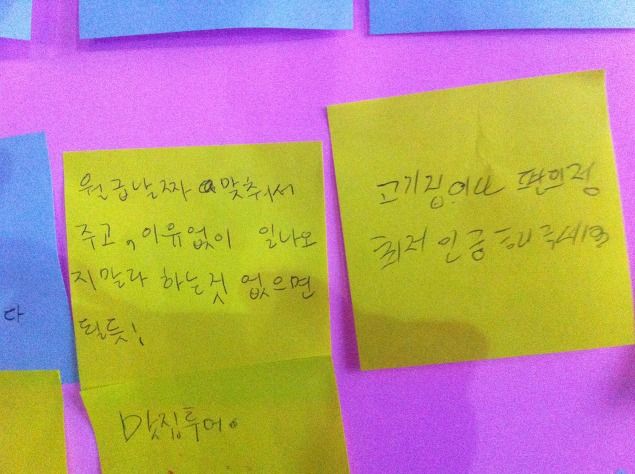 월급날짜 맞춰서
주고, 이유없이 일나오
지말라 하는것 없으면
될듯!
맛집투어.
고기집이나 편의점
최저 인금 해주세요
다